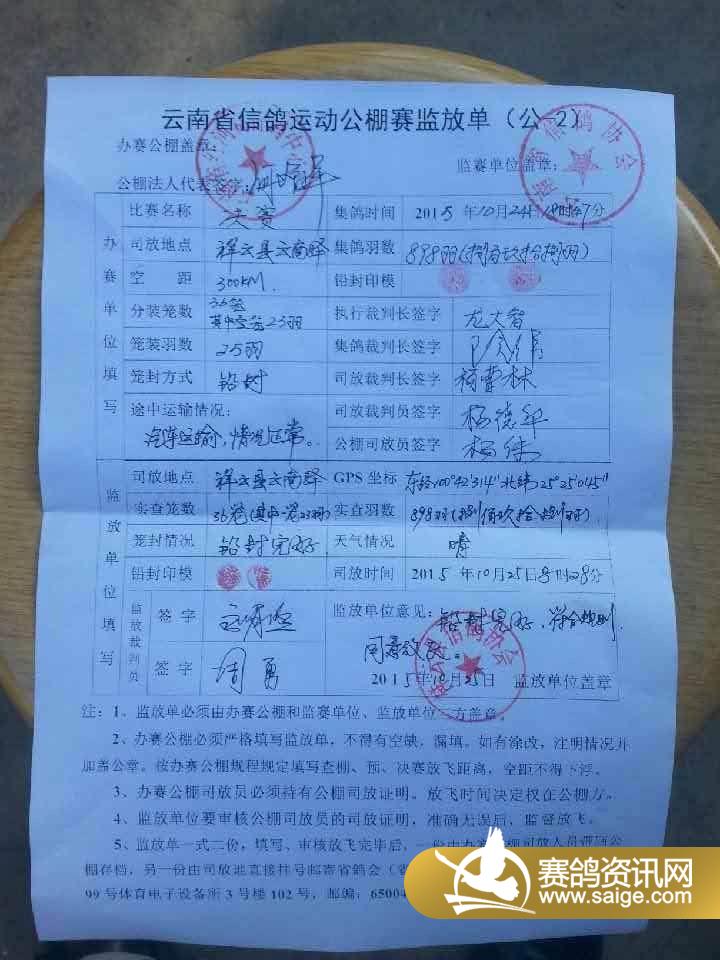 云南省信鸽运动公棚赛监放单（公-2）
办赛公棚盖章：
监赛单位盖章：
公棚法人代表签字：
比赛名称 决赛 集鸽时间 2015 年10月24日18时47分
办赛单位填写
司放地点 祥云县云南驿 集鸽羽数 898羽(捌百玖拾捌羽)
空 距 300KM. 铅封印模
分装笼数 36笼 其中壹笼23羽 执行裁判长签字 龙大智
笼装羽数 25羽 集鸽裁判长签字
笼封方式 铅封 司放裁判长签字
途中运输情况： 司放裁判员签字 杨德华
汽车运输，情况正常。 公棚司放员签字 杨伟
监放单位填写
司放地点 祥云县云南驿 GPS 坐标 东经100°42'314" 北纬25°25'045"
实查笼数 36笼(其中一笼23羽) 实查羽数 898羽(捌佰玖拾捌羽)
笼封情况 铅封完好 天气情况 晴
铅封印模 司放时间 2015 年10月25日8时28分
监放裁判员
签 字 监放单位意见：铅封完好，符合规则
同意放飞。
签 字 周勇 2015年10月25日 监放单位盖章
注：1、监放单必须由办赛公棚和监赛单位、监放单位三方盖章。
2、办赛公棚必须严格填写监放单，不得有空缺，漏填。如有涂改，注明情况并
加盖公章。按办赛公棚规程规定填写查棚、预、决赛放飞距离，空距不得下浮。
3、办赛公棚司放员必须持有公棚司放证明。放飞时间决定权在公棚方。
4、监放单位要审核公棚司放员的司放证明，准确无误后，监督放飞。
5、监放单一式二份，填写、审核放飞完毕后，一份由办赛公棚司放人员带回公
棚存档，另一份由司放地直接挂号邮寄省鸽会（省
99 号体育电子设备所 3 号楼 102 号，邮编：65004
赛鸽资讯网
www.saige.com